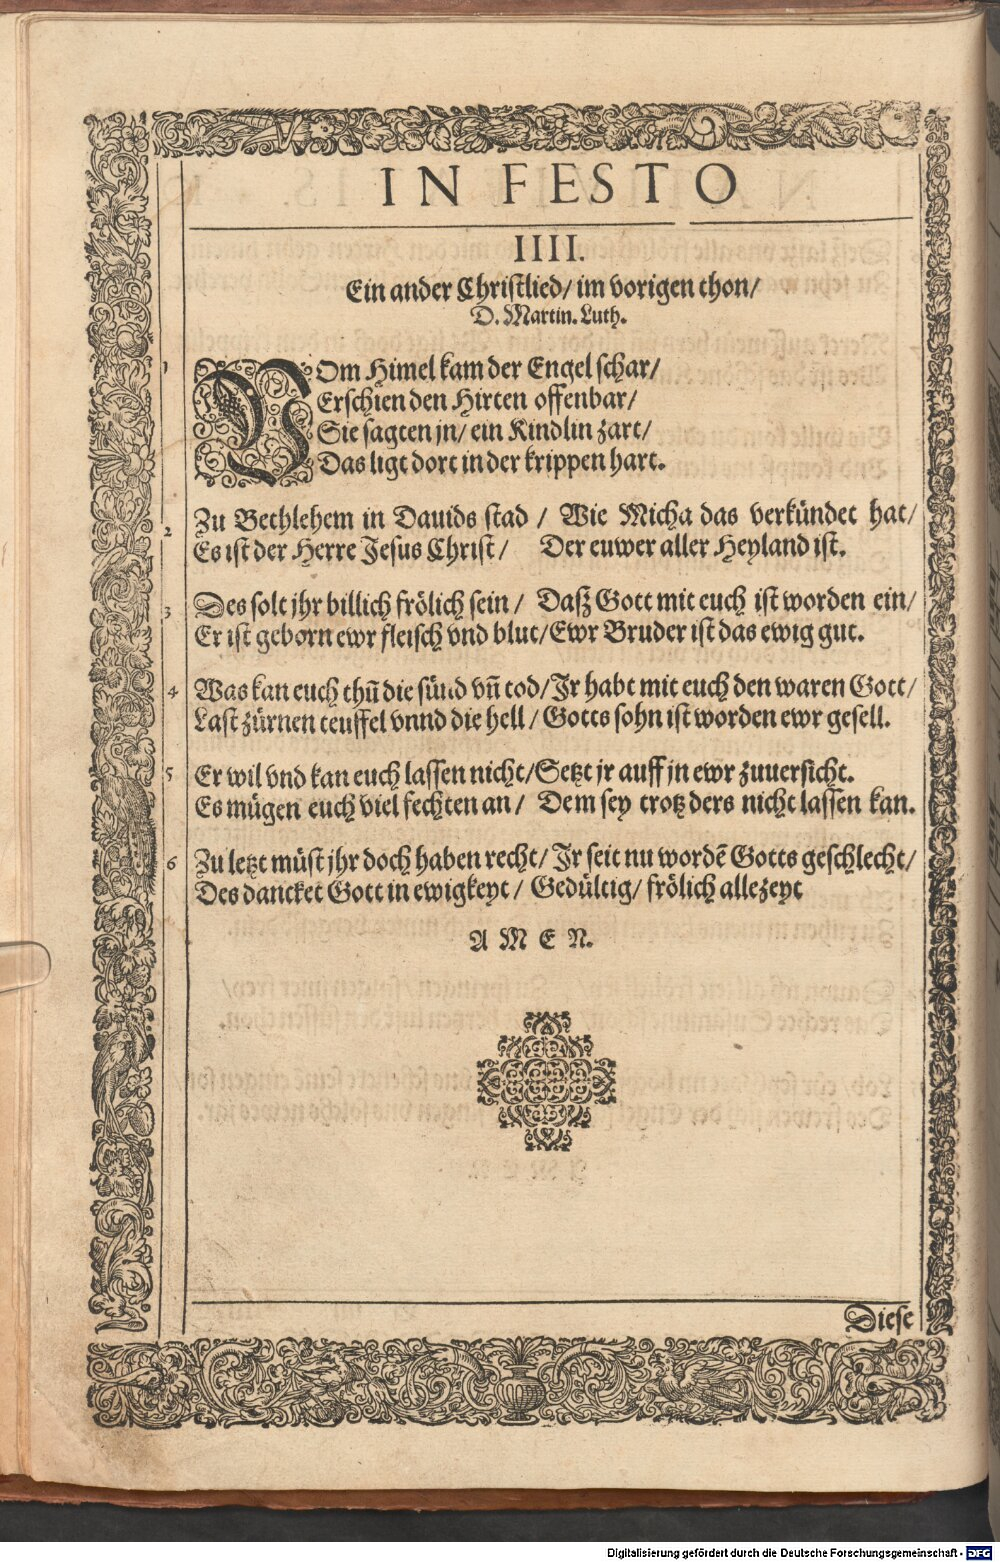 IN FESTO
IIII.
Ein ander Christlied/ im vorigen thon/
D. Martin. Luth.
1 VOm Himel kam der Engel schar/
Erschien den Hirten offenbar/
Sie sagten jn/ ein Kindlin zart/
Das ligt dort in der krippen hart.
2 Zu Bethlehem in Dauids stad / Wie Micha das verkündet hat/
Es ist der Herre Jesus Christ/ Der euwer aller Heyland ist.
3 Des solt jhr billich frölich sein / Dasz Gott mit euch ist worden ein/
Er ist geborn ewr fleisch vnd blut/Ewr Bruder ist das ewig gut.
4 Was kan euch thun̄ die sünd vn̄ tod/Jr habt mit euch den waren Gott/
Last zürnen teuffel vnnd die hell / Gotts sohn ist worden ewr gesell.
5 Er wil vnd kan euch lassen nicht/Setzt jr auff jn ewr zuuersicht.
Es mügen euch viel fechten an / Dem sey trotz ders nicht lassen kan.
6 Zu letzt müst jhr doch haben recht/ Jr seit nu wordē Gotts geschlecht/
Des dancket Gott in ewigkeyt / Gedültig/ frölich allezeyt
A M E N.
Diese
Digitalisierung gefördert durch die Deutsche Forschungsgemeinschaft - DFG